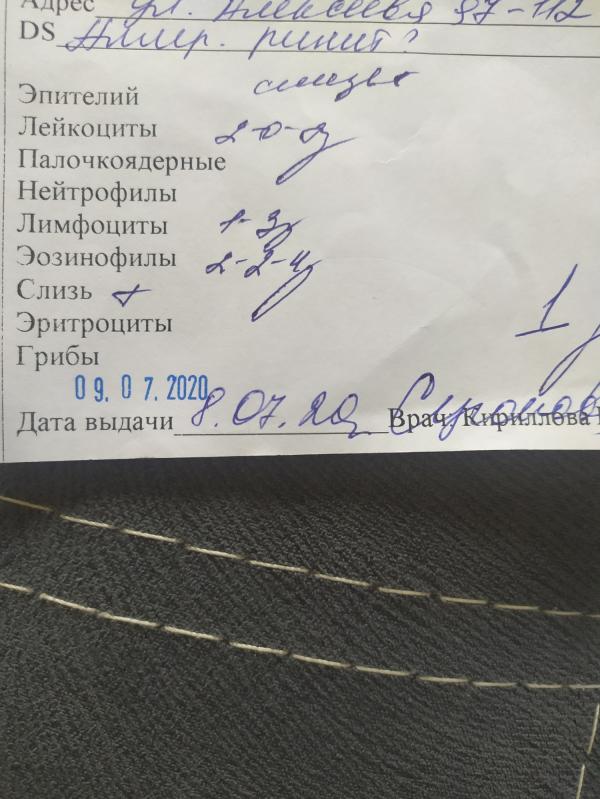 Адрес ул. Алексеева 97-112
DS Аллер. ринит?
Эпителий
Лейкоциты 2-0-2
Палочкоядерные
Нейтрофилы
Лимфоциты 1-3
Эозинофилы 2-2-4
Слизь +
Эритроциты
Грибы
09.07.2020
Дата выдачи 8.07.20 Врач: Кириллова